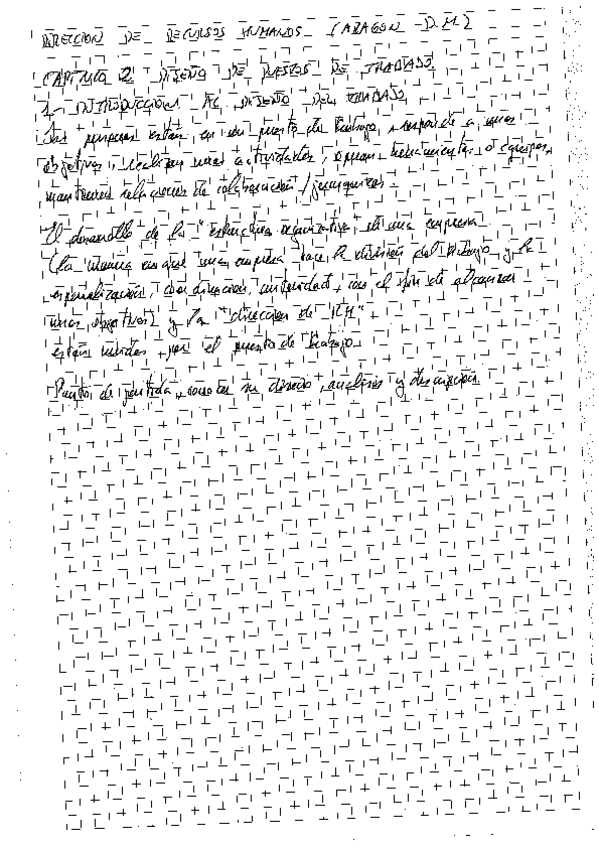 DIRECCION DE RECURSOS HUMANOS (ARAGON - D.M.)
CAPITULO 2: DISEÑO DE PUESTOS DE TRABAJO
1.- INTRODUCCION AL DISEÑO DEL TRABAJO
Las personas están en un puesto de trabajo, responde a unos
objetivos, realizan unas actividades, operan herramientas o equipos,
mantienen relaciones de colaboración / jerárquicas.
El desarrollo de la "estructura organizativa" de una empresa
(la manera en que una empresa hace la división del trabajo y la
especialización, coordinación, autoridad, con el fin de alcanzar
unos objetivos) y la "dirección de RH"
están unidas por el puesto de trabajo.
Punto de partida, su diseño, análisis y descripción